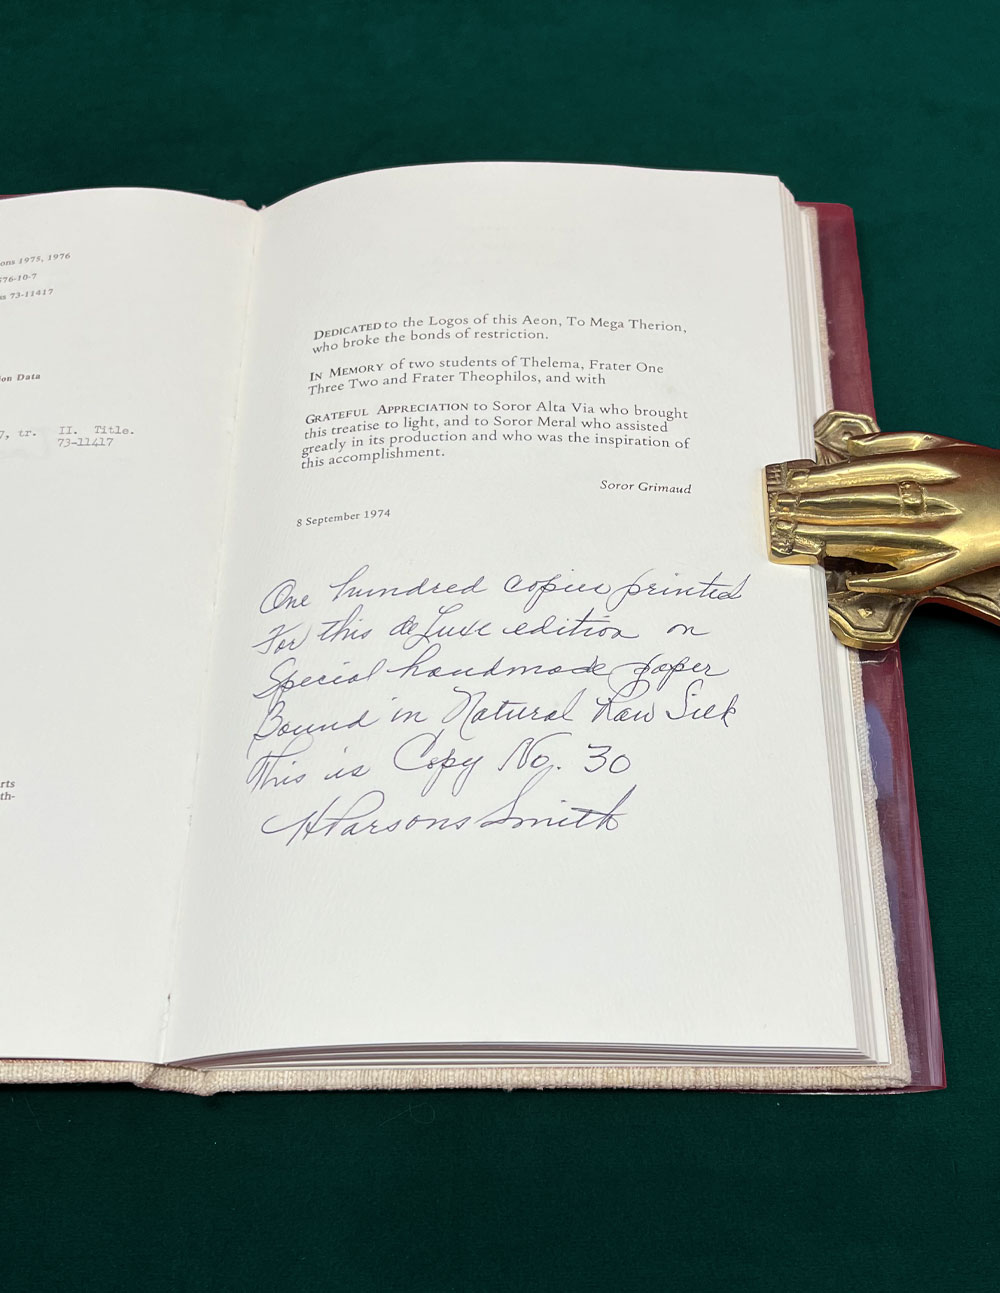 ons 1975, 1976
576-10-7
s 73-11417
on Data
7, tr. II. Title.
73-11417
rts
th-
DEDICATED to the Logos of this Aeon, To Mega Therion,
who broke the bonds of restriction.
IN MEMORY of two students of Thelema, Frater One
Three Two and Frater Theophilos, and with
GRATEFUL APPRECIATION to Soror Alta Via who brought
this treatise to light, and to Soror Meral who assisted
greatly in its production and who was the inspiration of
this accomplishment.
Soror Grimaud
8 September 1974
One hundred copies printed
For this deLuxe edition on
Special handmade paper
Bound in Natural Raw Silk
This is Copy No. 30
H Parsons Smith